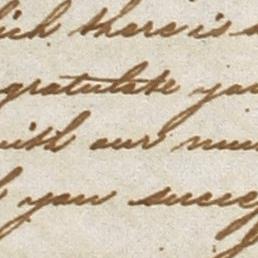 ich there is
gratulate you
with our mu
you succe